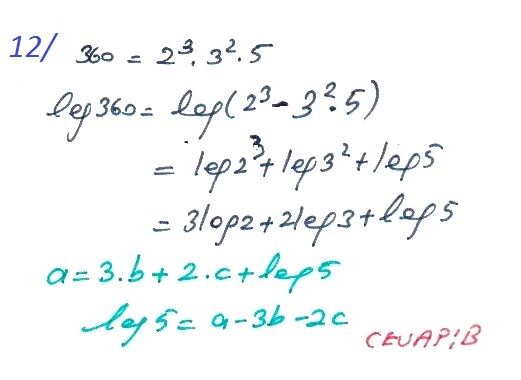 12/ 360 = 2³. 3². 5
log 360 = log(2³ - 3². 5)
= log2³ + log3² + log5
= 3log2 + 2log3 + log5
a = 3.b + 2.c + log5
log5 = a - 3b - 2c
CEVAP: B